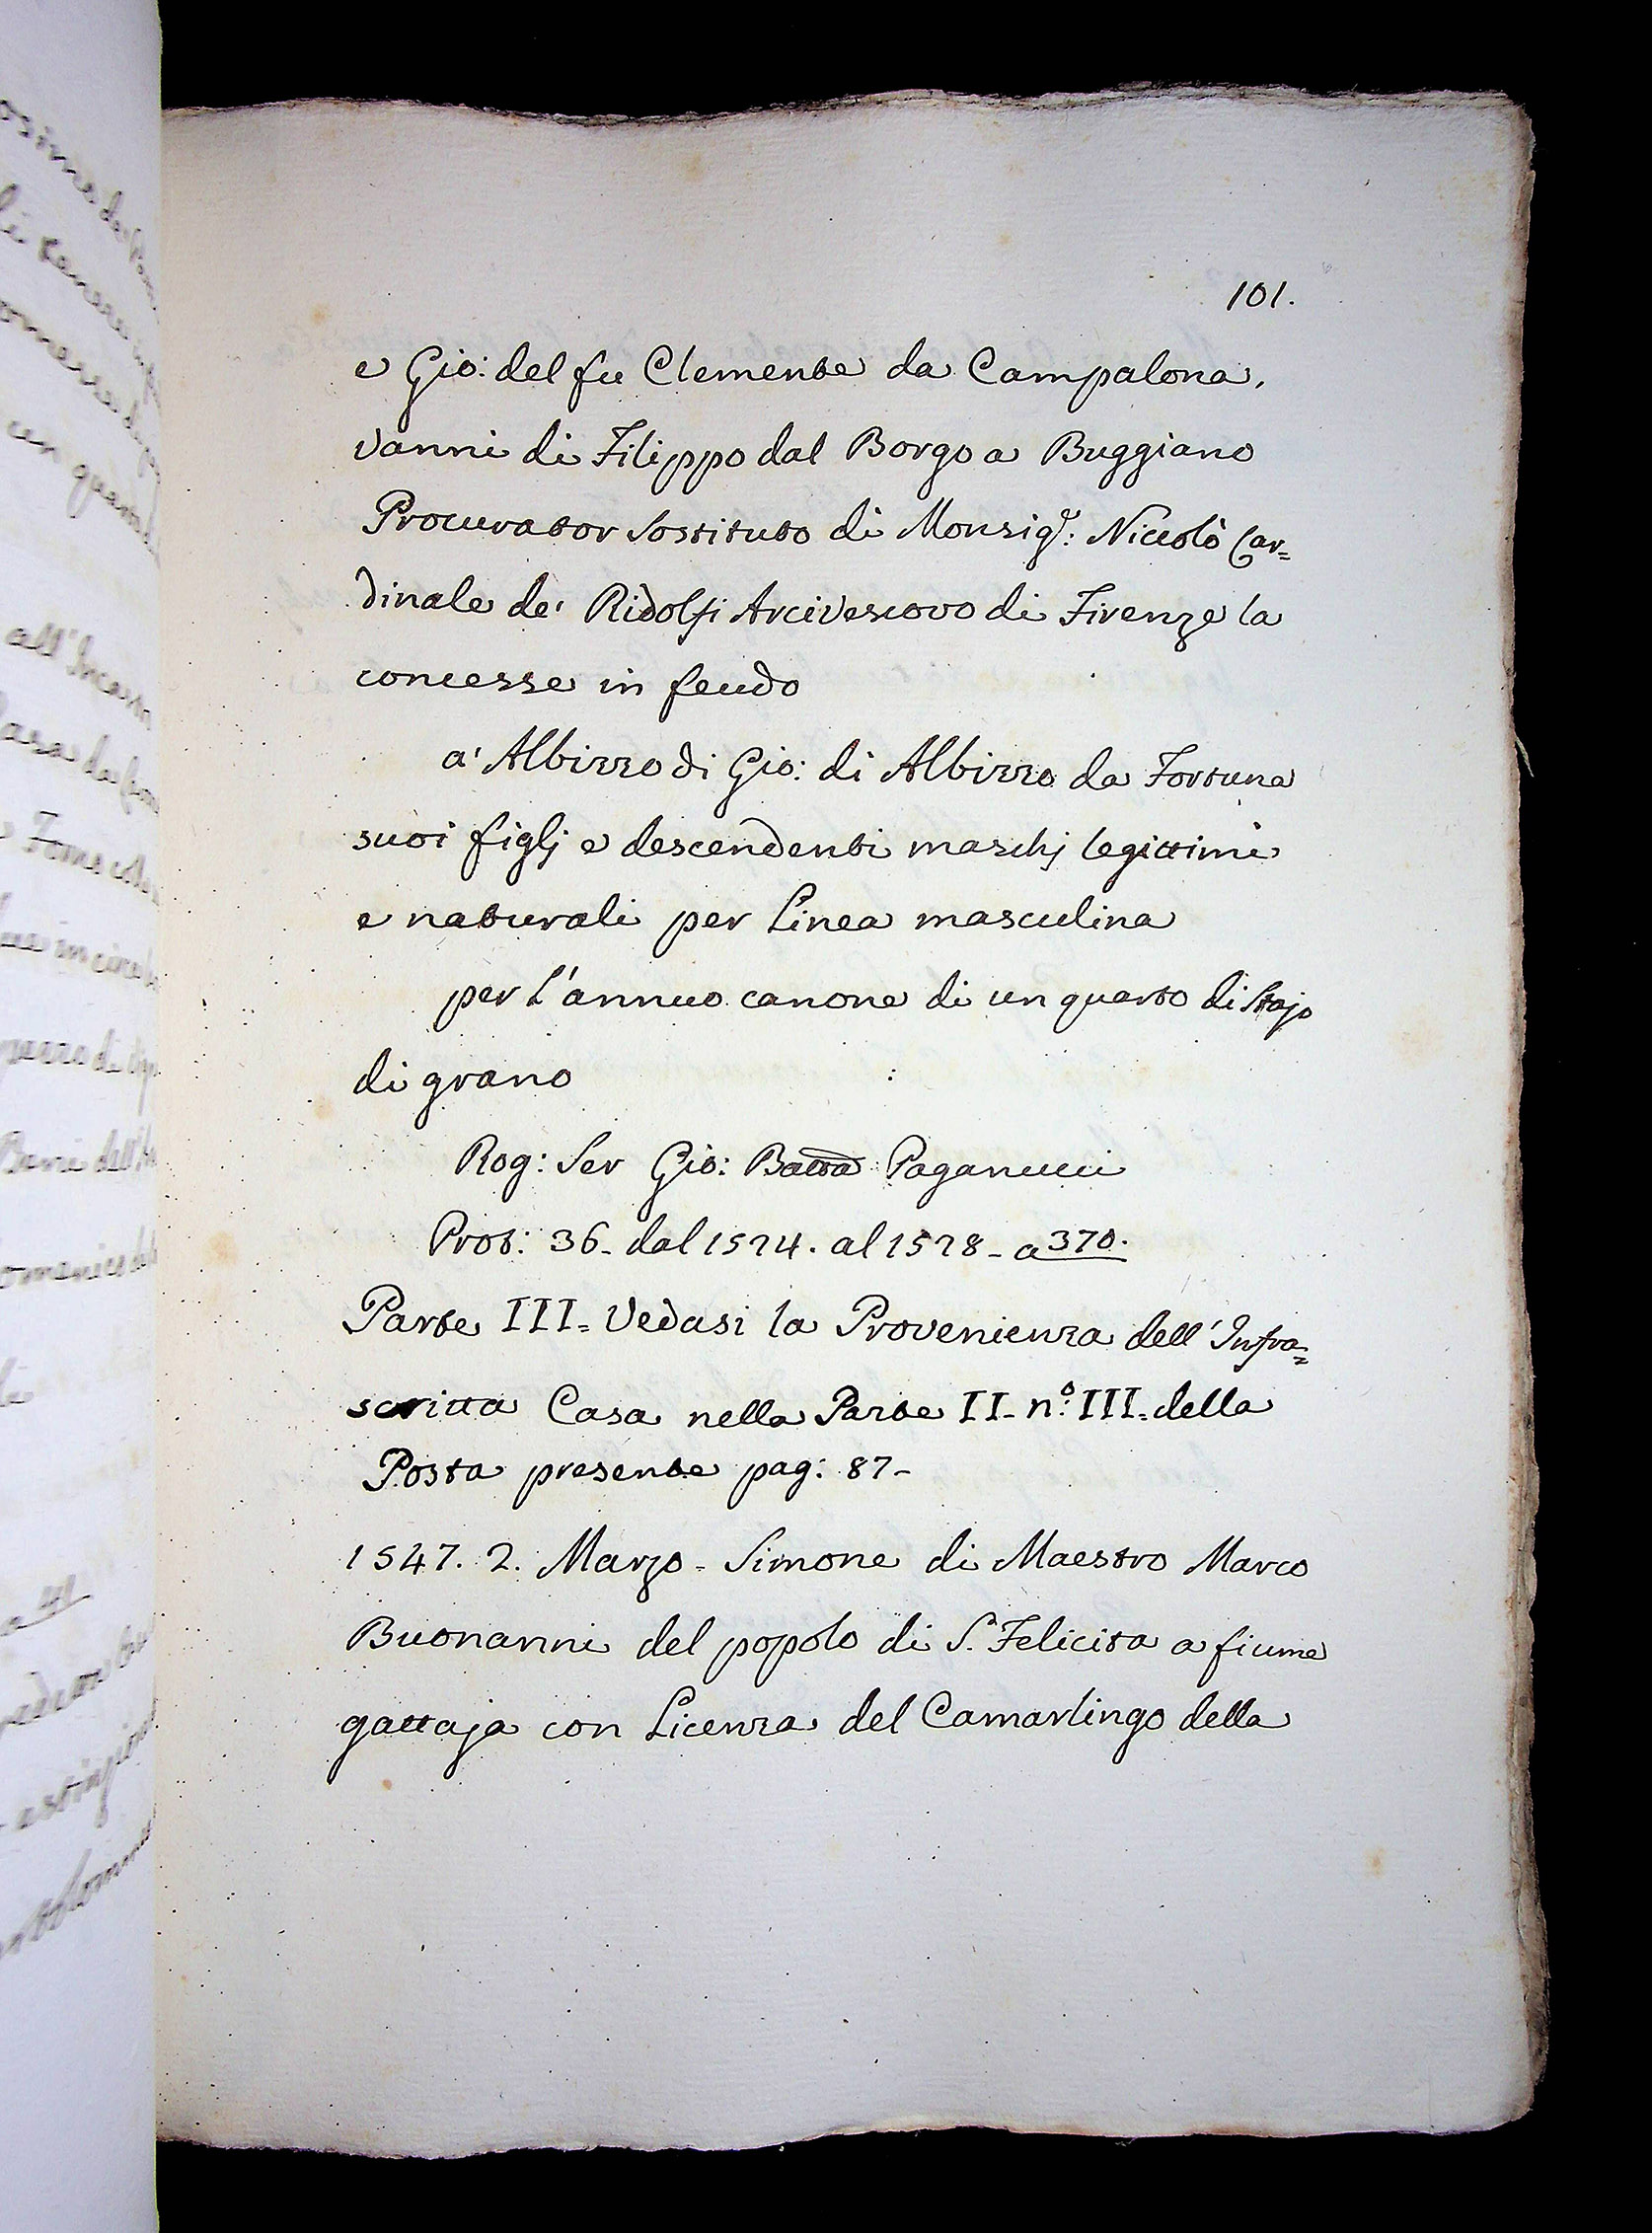 101.
e Gio: del fu Clemente da Campalona,
Vanni di Filippo dal Borgo a Buggiano
Procurator Sostituto di Monsig.r: Niccolò Car=
dinale de' Ridolfi Arcivescovo di Firenze la
concesse in feudo
a' Albizzo di Gio: di Albizzo da Fortuna
suoi figlj e descendenti maschj legittimi
e naturali per Linea masculina
per L'annuo canone di un quarto di Stajo
di grano
Rog: Ser Gio: Batta Paganucci
Prot: 36- dal 1524. al 1528- a 370.
Parte III= Vedasi la Provenienza dell'Infra=
scritta Casa nella Parte II- n.º III= della
Posta presente pag: 87-
1547. 2. Marzo- Simone di Maestro Marco
Buonanni del popolo di S. Felicita a fiume
gattaja con Licenza del Camarlingo della